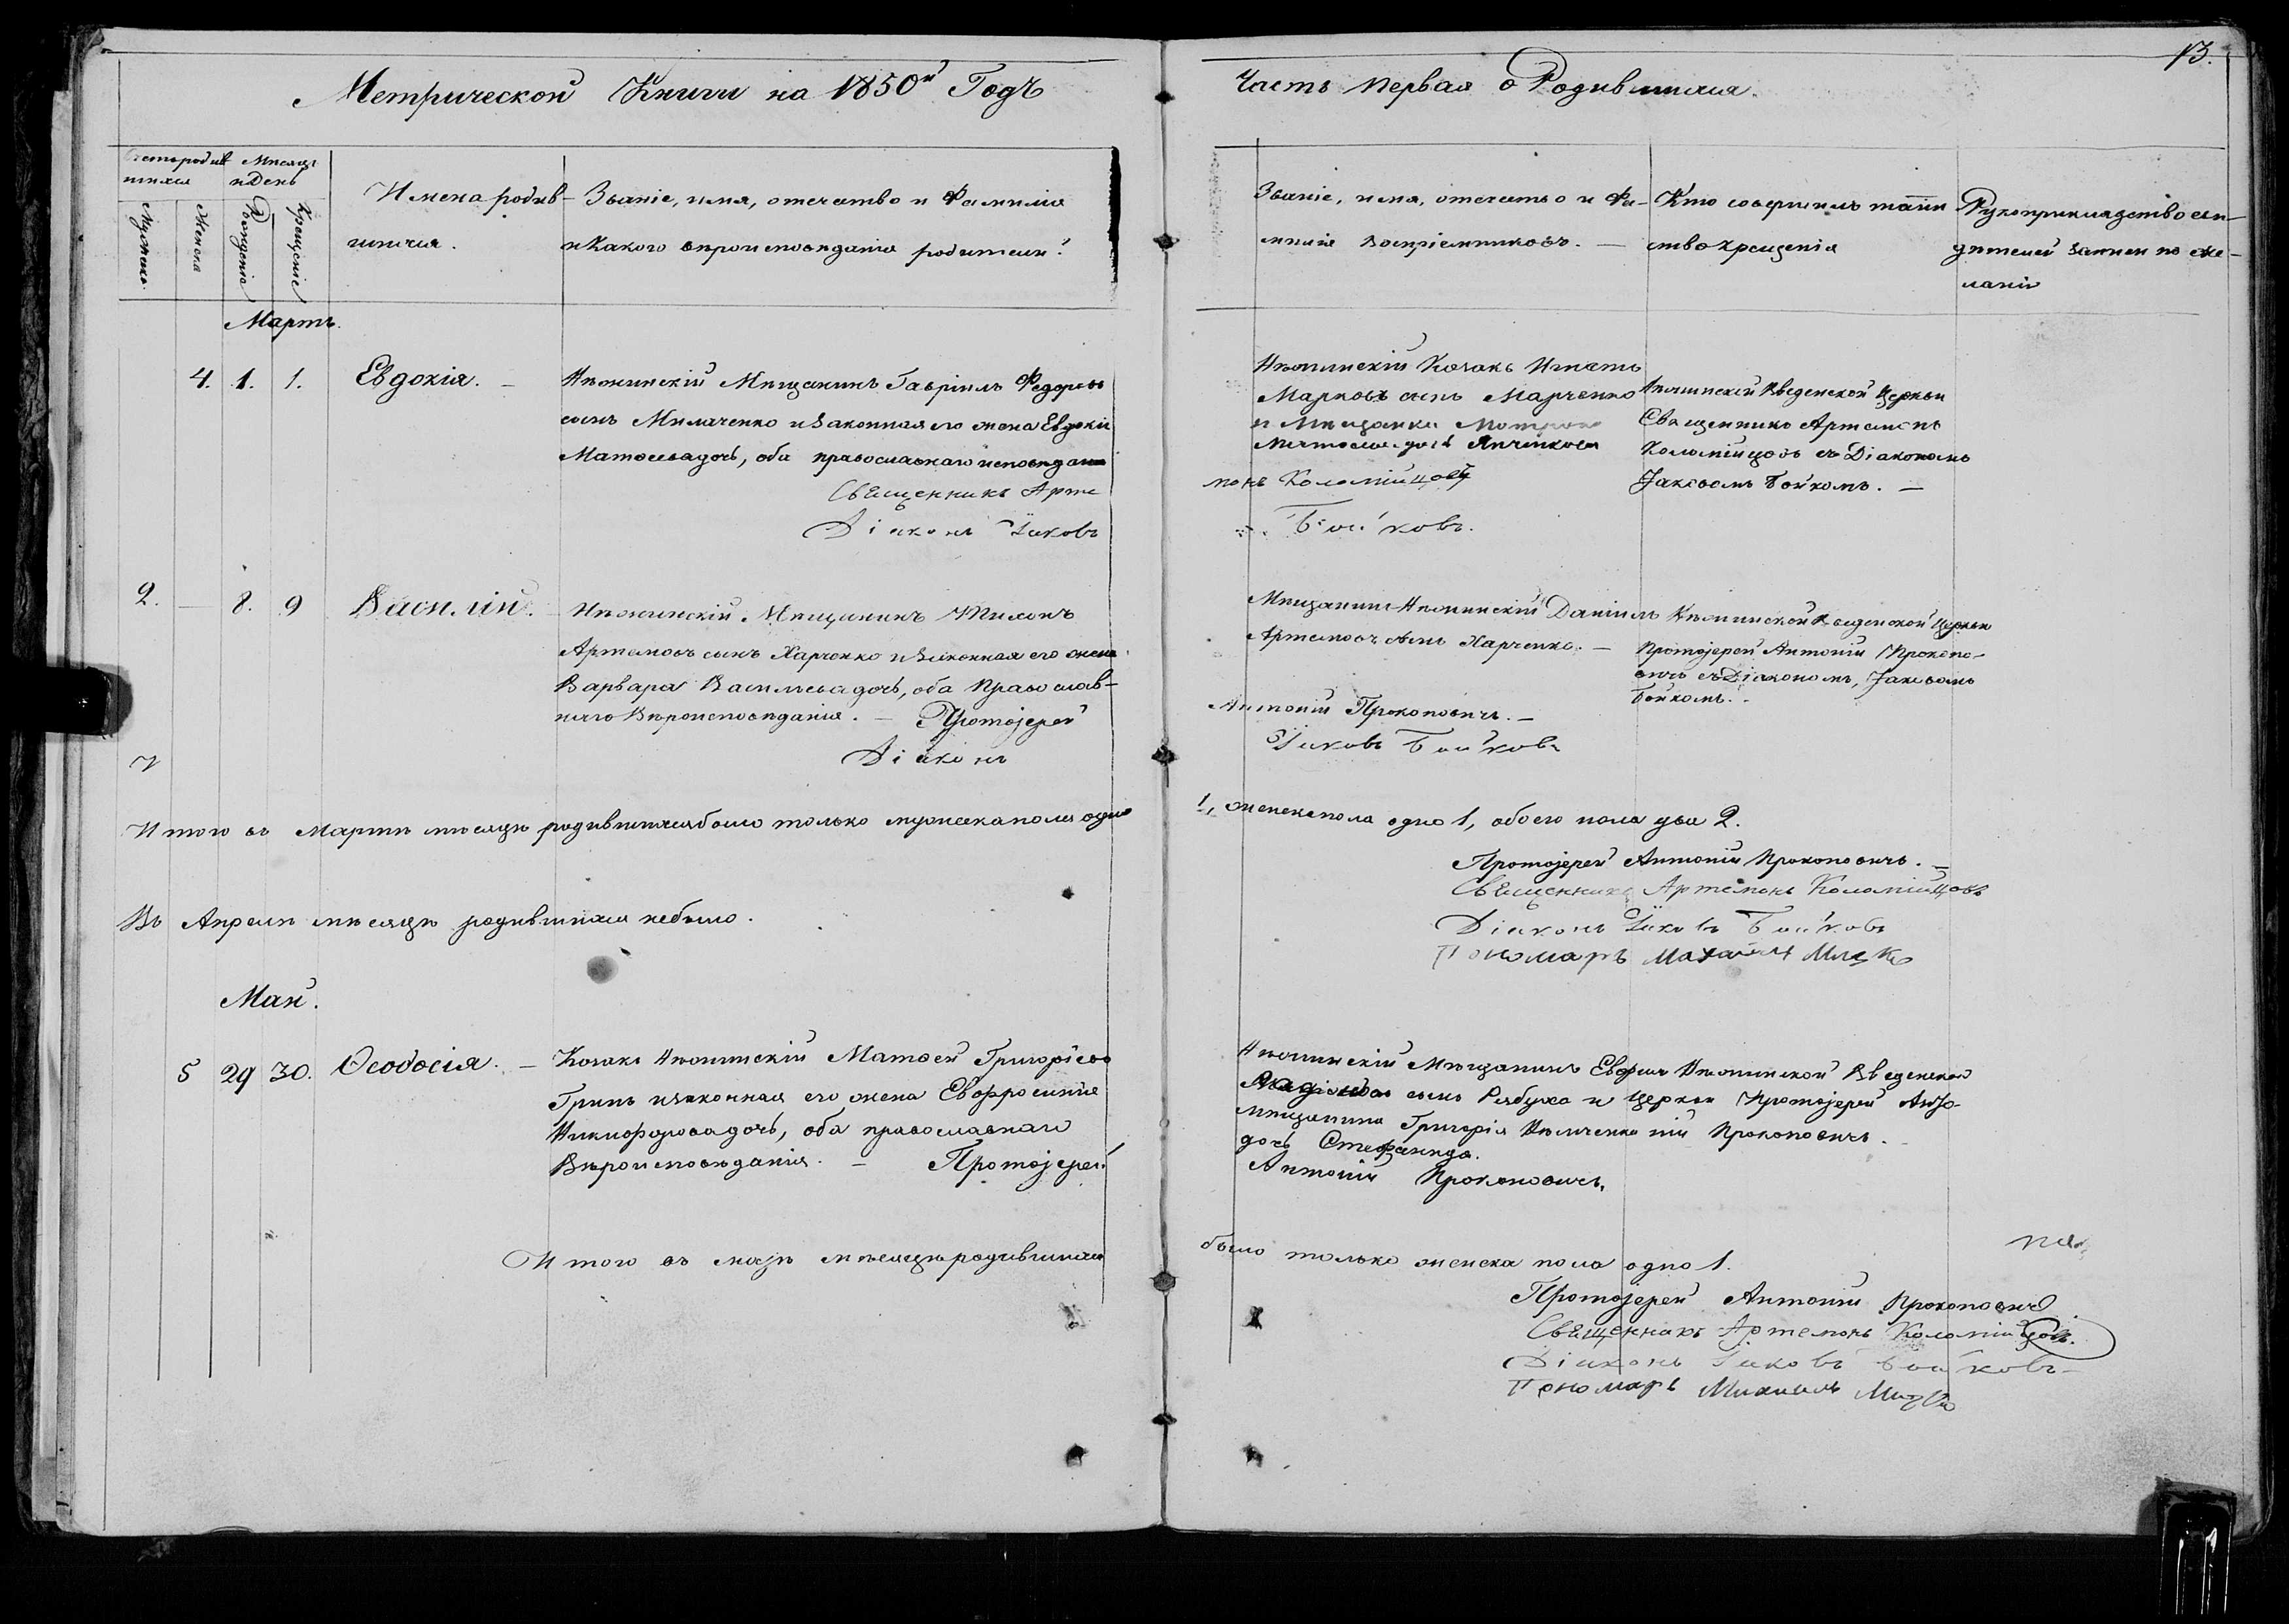 13.
Метрической Книги на 1850й Годъ
Часть Первая о Родившихся.
Счетъ родив
шихся
Мѣсяцъ
и День
Мужеска
Женска
Рожденіе
Крещеніе
Имена родив-
шихся.
Званіе, имя, отечество и Фамилія
и Какого вѣроисповѣданія родители
Званіе, имя, отечество и Фа-
милія Воспріемниковъ. —
Кто совершилъ таин
ство крещенія
Рукоприкладство сви-
дѣтелей записи по же-
ланію
Мартъ.
4. 1. 1. Евдокія. —
Нѣжинскій Мѣщанинъ Гавріилъ Федоровъ
сынъ Милаченко и Законная его жена Евдокія
Матѳеевадочь, оба православнаго исповѣданія
Священникъ Арте
Діаконъ Іаковъ
Нѣжинскій Козакъ Игнатъ
Марковъ сынъ Марченко
и Мѣщанка
дочь
монъ Коломійцовъ
Бойковъ.
Нѣжинской Введенской Церкви
Священникъ Артемонъ
Коломійцовъ съ Діакономъ
Јаковомъ Бойкомъ. —
2. — 8. 9 Василій.
Нѣжинскій Мѣщанинъ Тимонъ
Артемовъ сынъ Харченко и Законная его жена
Варвара Васильевадочь, оба Православ-
наго Вѣроисповѣданія. — Протојерей
Діаконъ
Мѣщанинъ Нѣжинскій Даніилъ
Артемовъ сынъ Харченко. —
Антоній Прокоповичъ. —
Іаковъ Бойковъ
Нѣжинской Введенской Церкви
Протојерей Антоній Прокопо-
вичъ съ Діакономъ, Јаковомъ
Бойкомъ.
Итого въ Мартѣ мѣсяцѣ родившихся было только мужеска пола одно
1, женска пола одно 1, обоего пола два 2.
Протојерей Антоній Прокоповичъ. —
Священникъ Артемонъ Коломійцовъ
Діаконъ Іаковъ Бойковъ
Пономарь
Въ Апрѣлѣ мѣсяцѣ родившихся небыло.
Май.
5 29 30. Ѳеодосія. —
Козакъ Нѣжинскій Матвей Григоріевъ
Гринь и законная его жена Евфросинія
Никифоровадочь, оба православнаго
Вѣроисповѣданія. — Протојерей
Нѣжинскій Мѣщанинъ
сынъ Рябуха и
Мѣщанина Григорія
дочь Стефанида.
Антоній Прокоповичъ.
Нѣжинской Введенской
Церкви Протојерей Анто-
ній Прокоповичъ.
Итого въ маѣ мѣсяцѣ родившихся
было только женска пола одно 1.
Протојерей Антоній Прокоповичъ
Священникъ Артемонъ Коломійцовъ.
Діаконъ Іаковъ Бойковъ
Пономарь Михаилъ